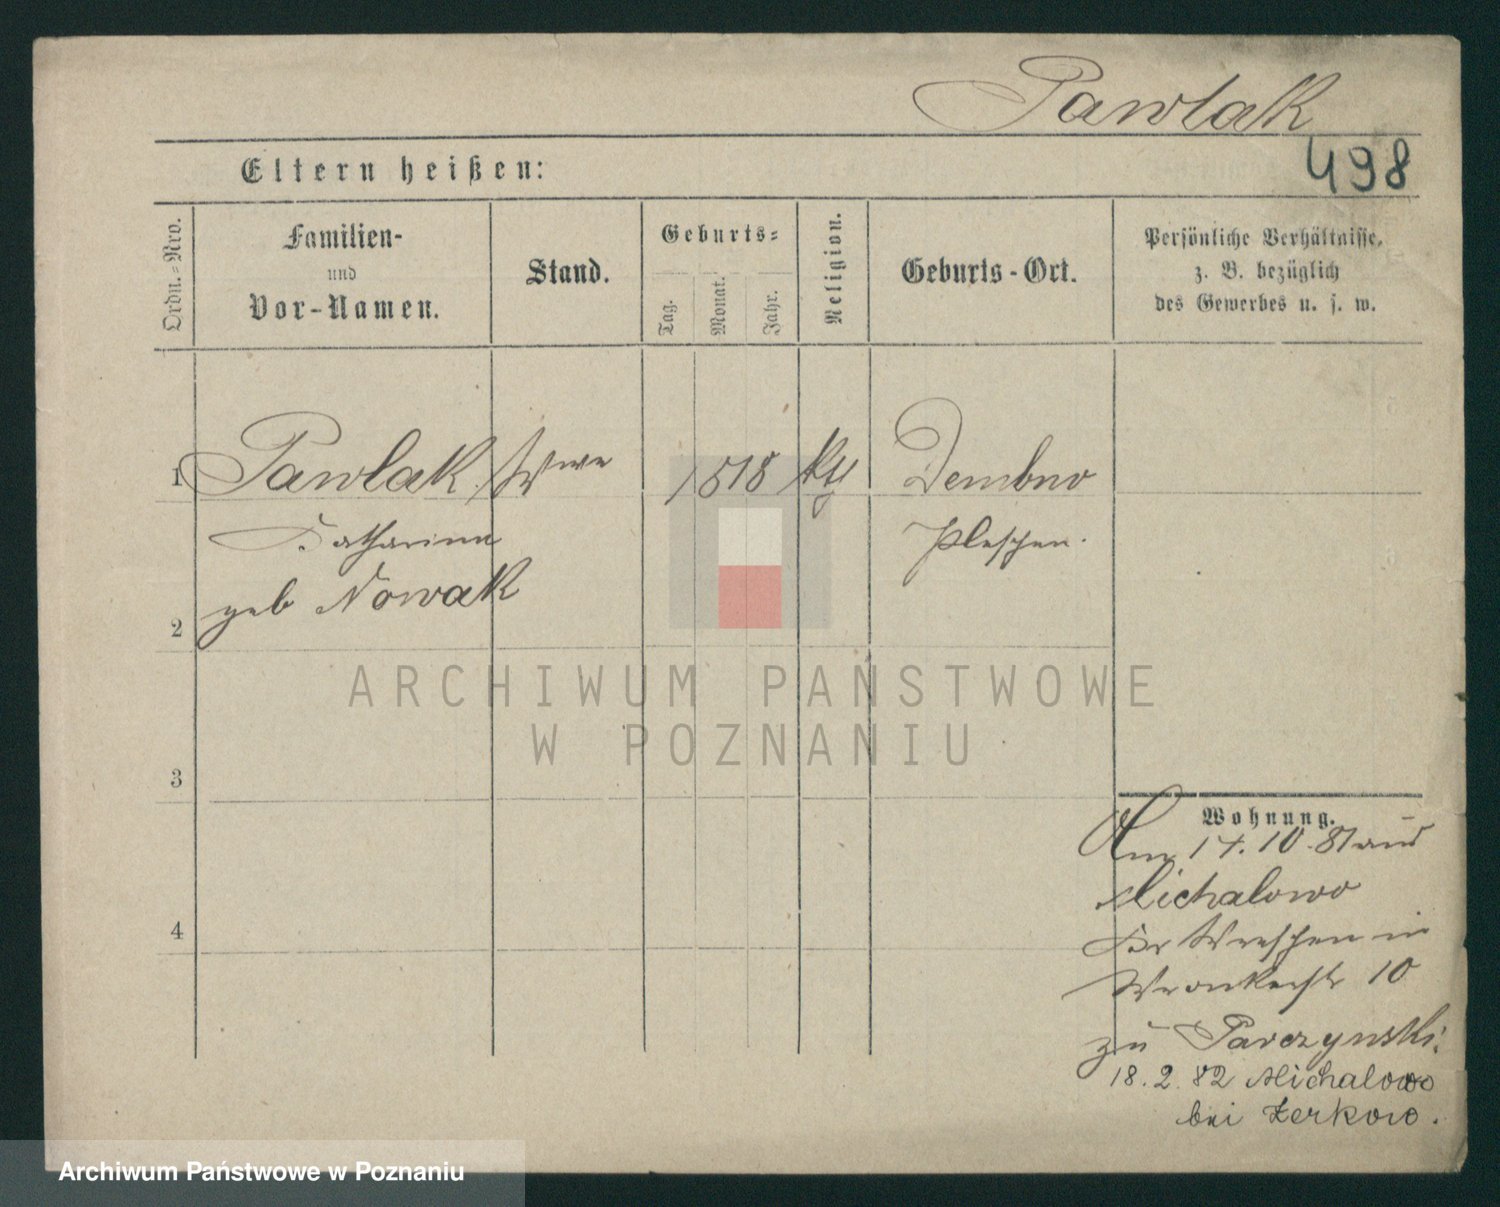 Pawlak
498
Eltern heißen:
Ordn.-Nro.
Familien-
und
Vor-Namen.
Stand.
Geburts-
Tag.
Monat.
Jahr.
Religion.
Geburts-Ort.
Persönliche Verhältnisse,
z. B. bezüglich
des Gewerbes u. s. w.
1 Pawlak Wwe 1818 kth Dembno
Catharina Pleschen.
geb Nowak
2
3
4
Wohnung.
Am 14.10.81 aus
Michalowo
Kr Wreschen in
Wronkerstr 10
zu Parczynski.
18.2.82 Michalowo
bei Zerkow.
ARCHIWUM PAŃSTWOWE
W POZNANIU
Archiwum Państwowe w Poznaniu